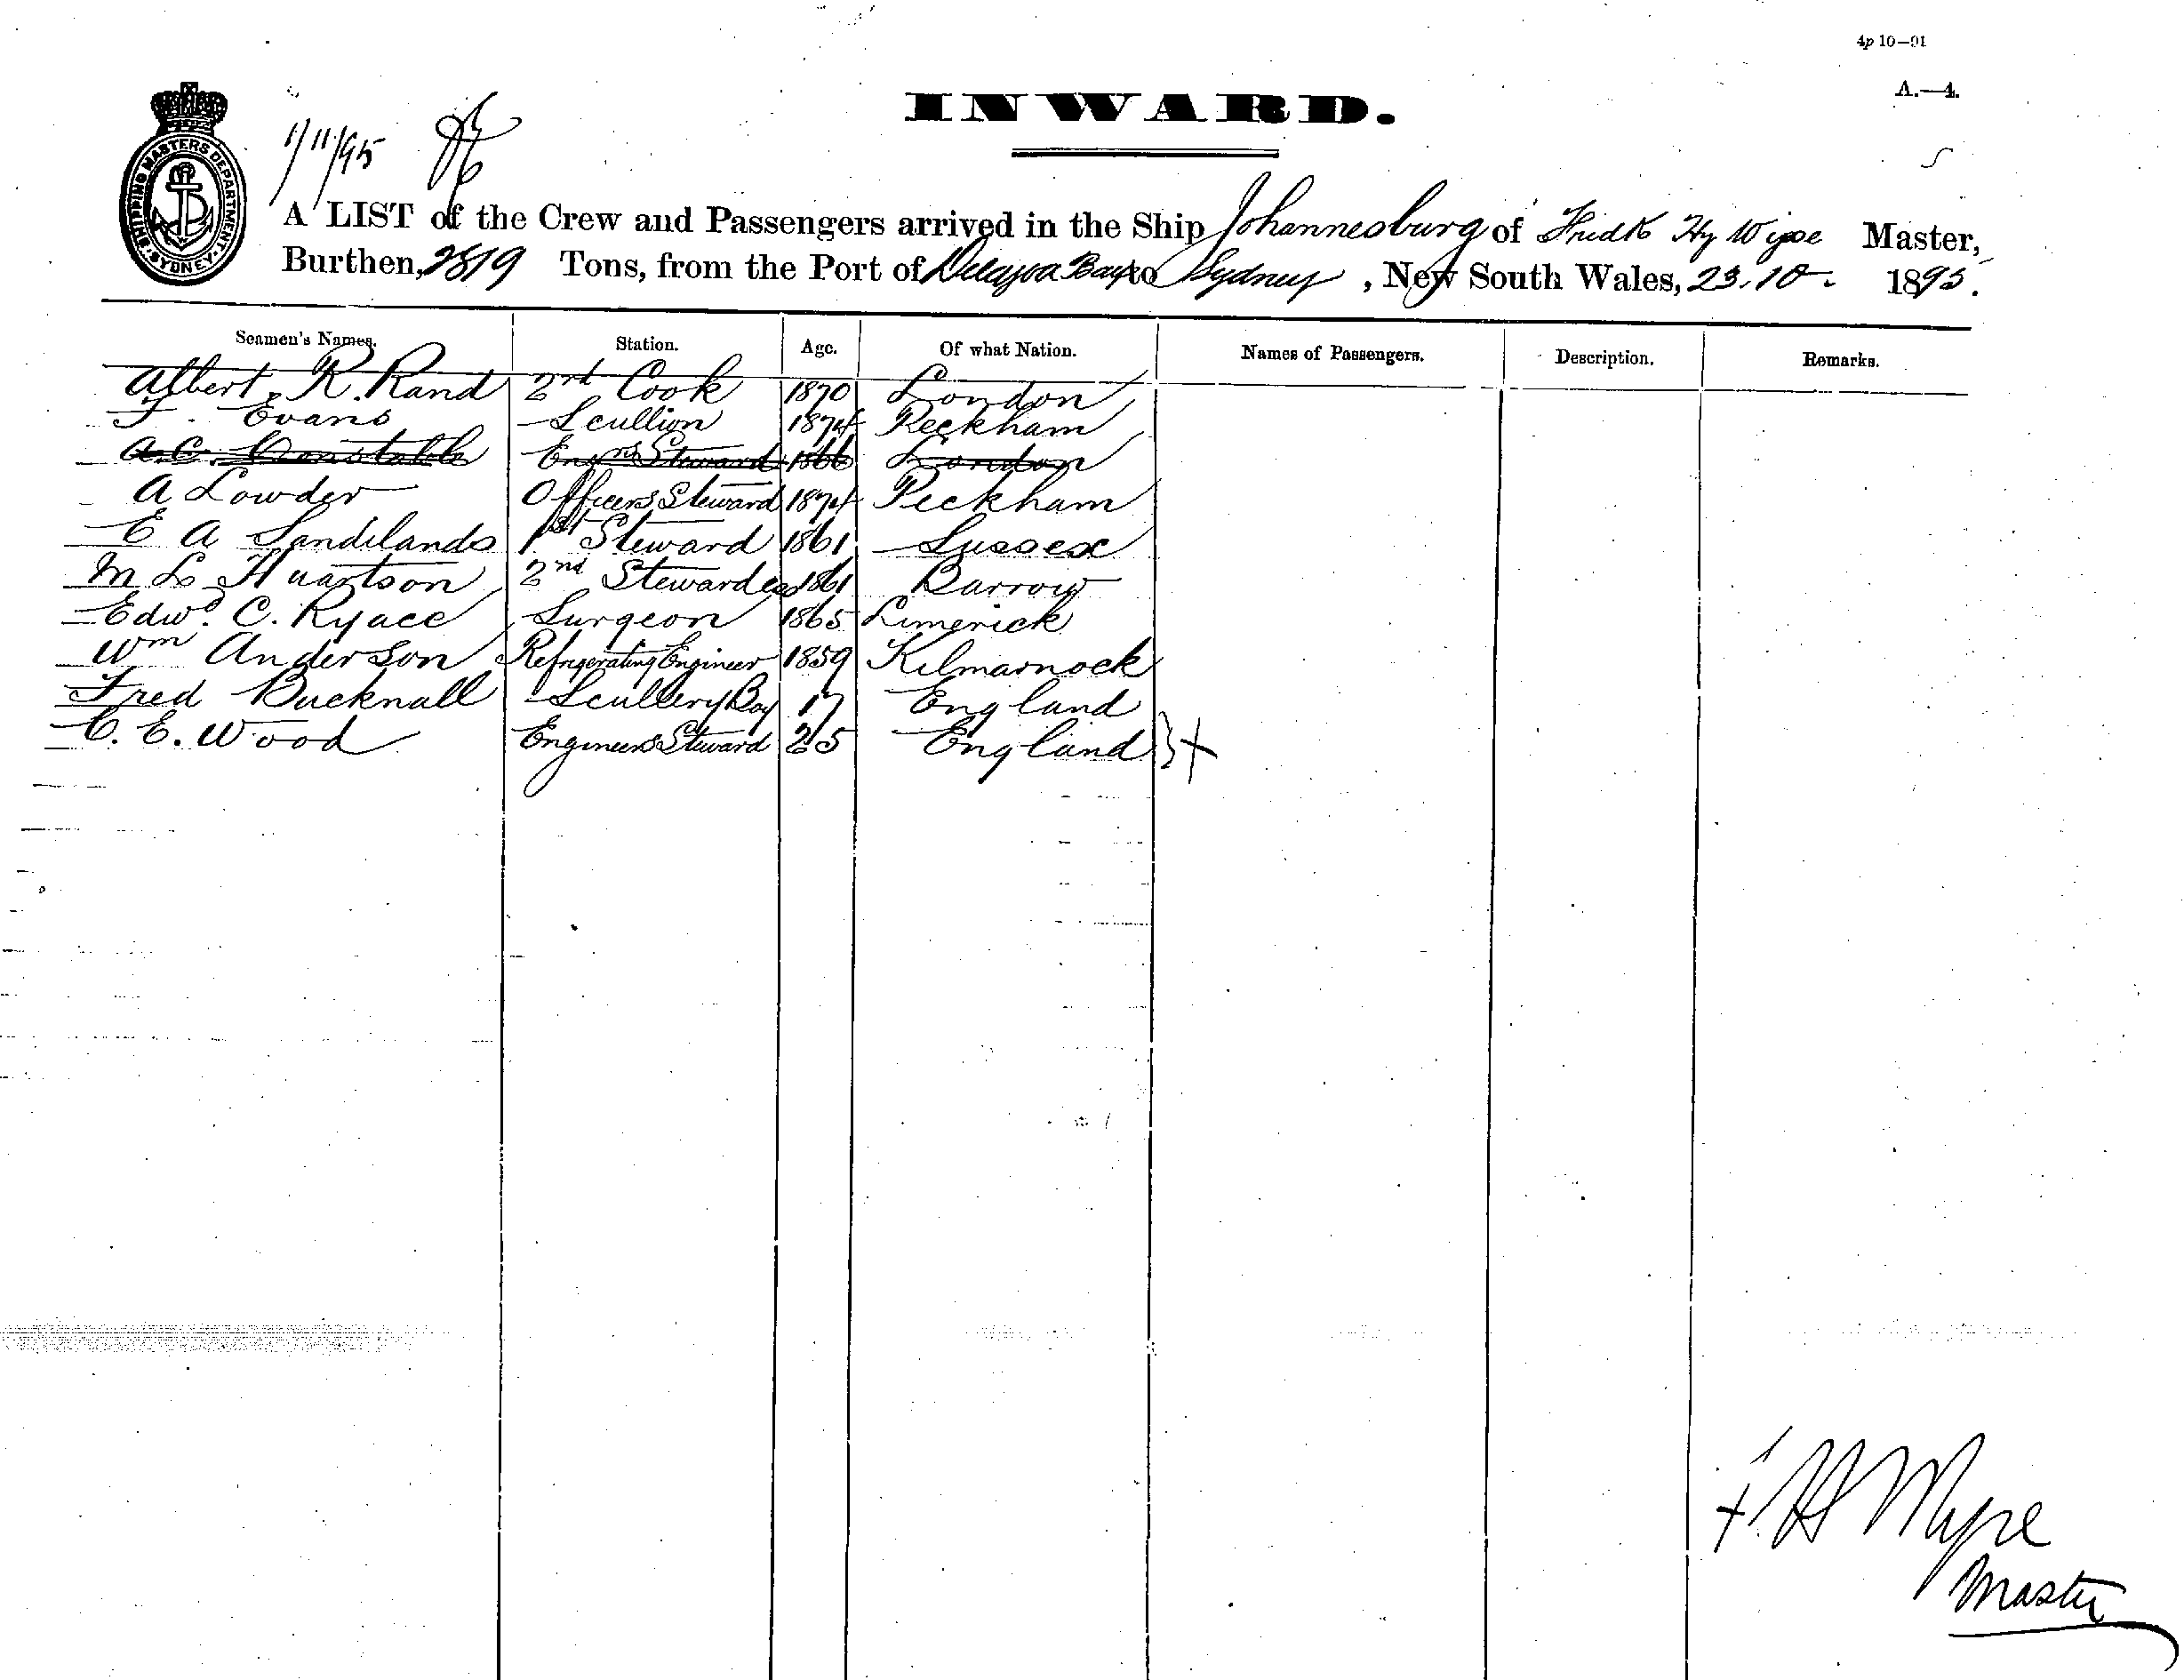 4p 10—91
A.—4.
INWARD.
1/11/95
SHIPPING MASTERS DEPARTMENT SYDNEY
A LIST of the Crew and Passengers arrived in the Ship Johannesburg of Fredk Hy Wyse Master,
Burthen, 2819 Tons, from the Port of Delagoa Bay to Sydney, New South Wales, 23.10. 1895.
Seamen's Names. Station. Age. Of what Nation. Names of Passengers. Description. Remarks.
Albert R. Rand 2nd Cook 1870 London
F. Evans Scullion 1874 Peckham
A.C. Constable Engrs Steward 1866 London
A Lowder Officers Steward 1874 Peckham
E A Sandilands 1st Steward 1861 Sussex
M L 2nd Stewardess 1861 Barrow
Edwd. C. Surgeon 1865 Limerick
Wm Anderson Refrigerating Engineer 1859 Kilmarnock
Fred Bucknall Scullery Boy 17 England
C. E. Wood Engineers Steward 25 England
Master